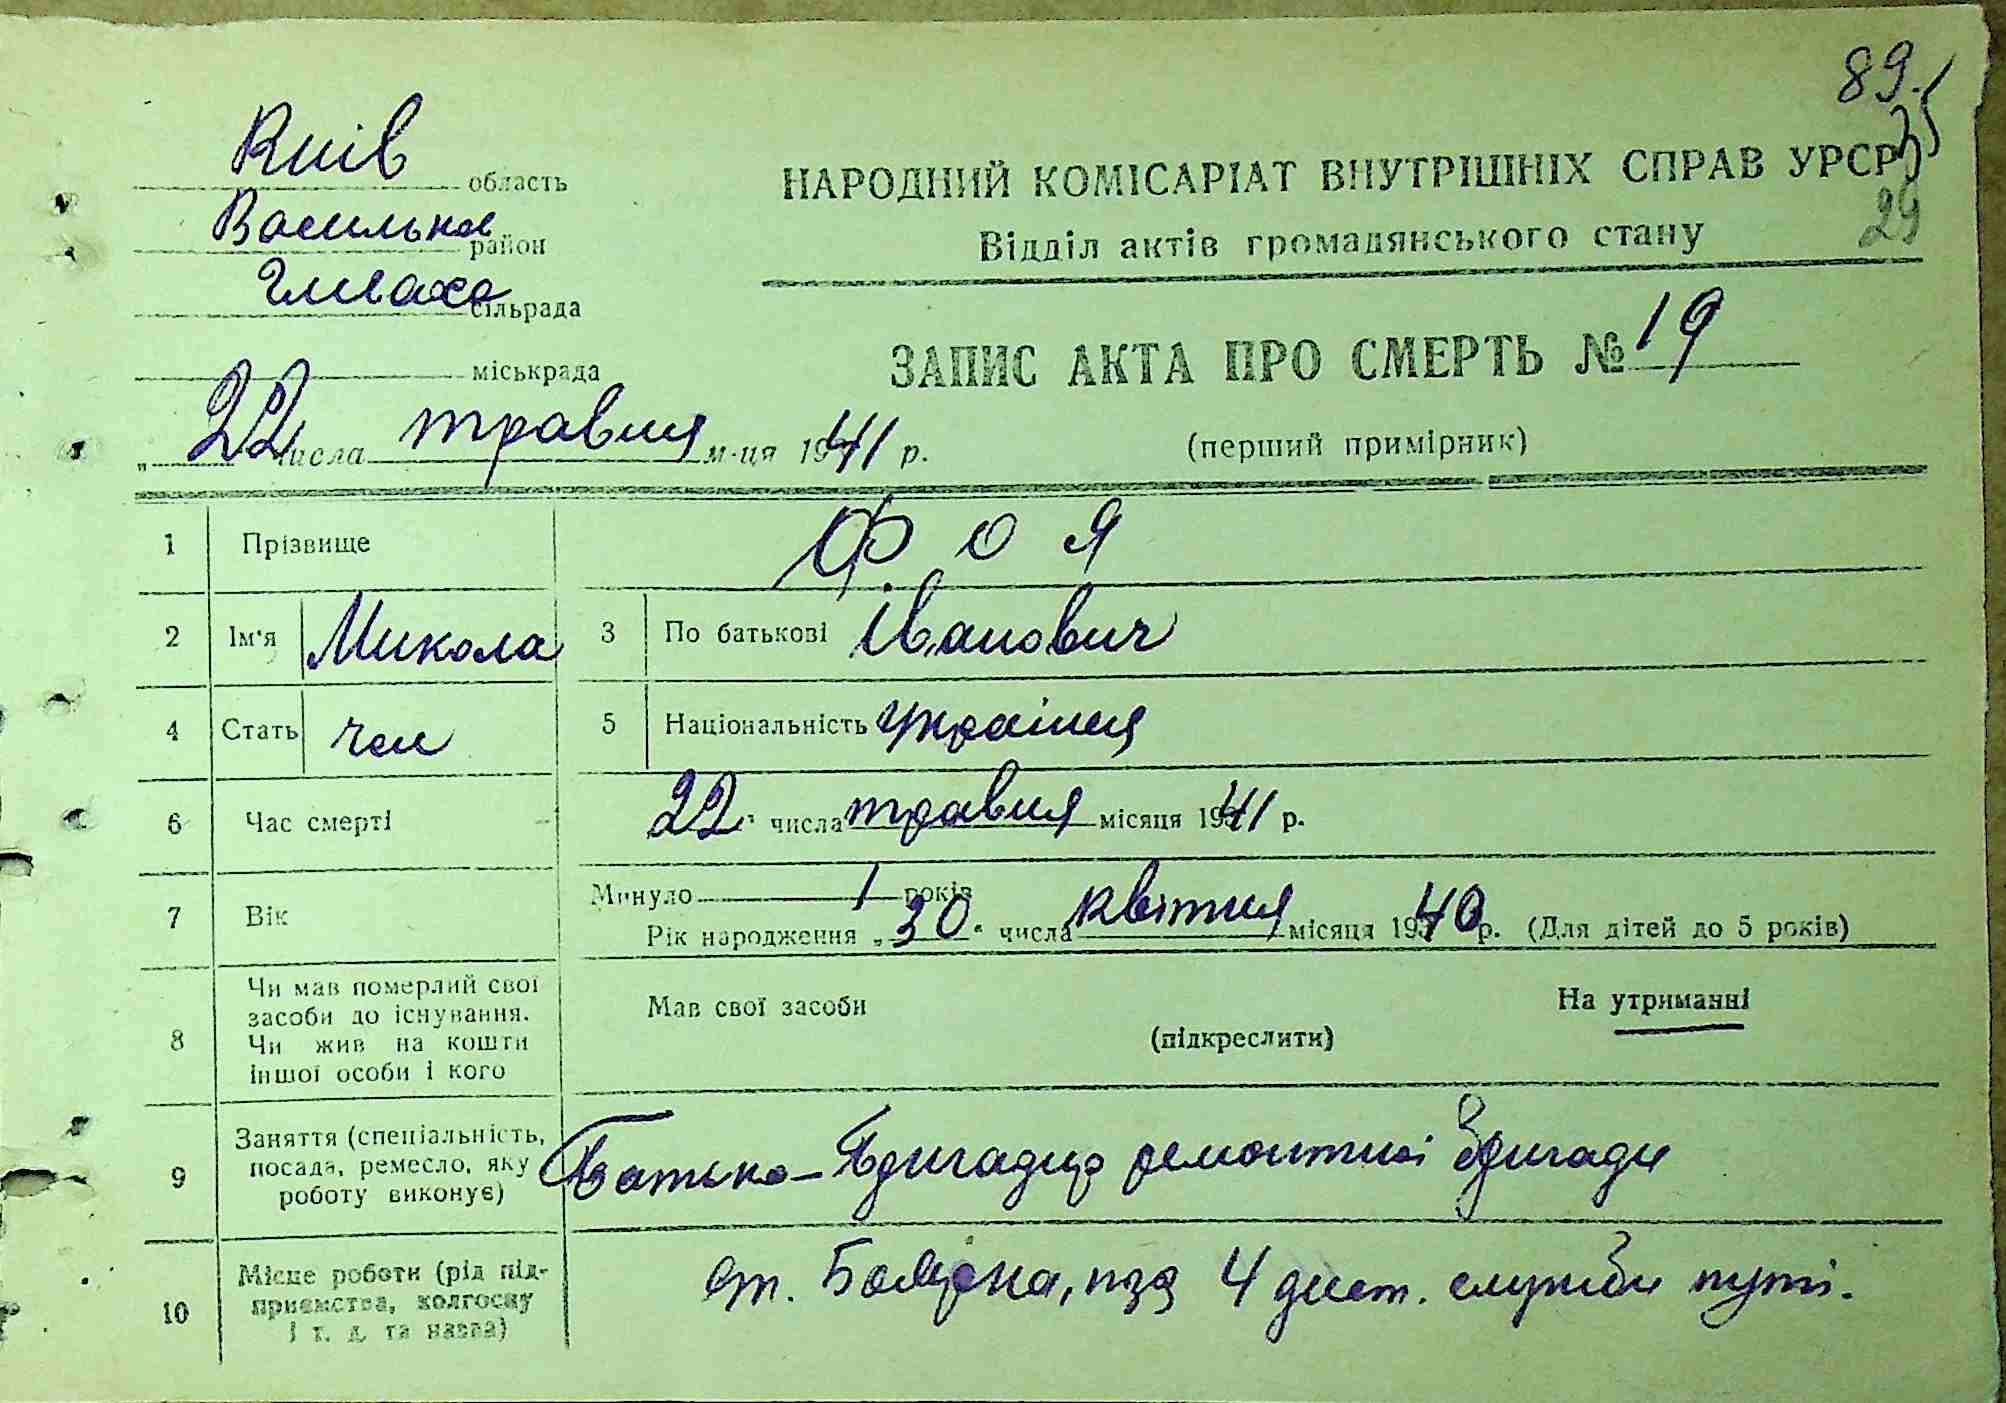 89.
35
29
Київ область
Васильків район
Глеваха сільрада
міськрада
НАРОДНИЙ КОМІСАРІАТ ВНУТРІШНІХ СПРАВ УРСР
Відділ актів громадянського стану
ЗАПИС АКТА ПРО СМЕРТЬ № 19
(перший примірник)
„22 числа травня м-ця 1941 р.
1 Прізвище Фоя
2 Ім'я Микола 3 По батькові Іванович
4 Стать чол 5 Національність українця
6 Час смерті 22" числа травня місяця 1941 р.
7 Вік Минуло 1 років
Рік народження „30" числа квітня місяця 1940 р. (Для дітей до 5 років)
8 Чи мав померлий свої засоби до існування. Чи жив на кошти іншої особи і кого
Мав свої засоби На утриманні
(підкреслити)
9 Заняття (спеціальність, посада, ремесло, яку роботу виконує) Батько – Бригадир ремонтної бригади
10 Місце роботи (рід підприємства, колгоспу і т. д. та назва) ст. Боярка, пзз 4 дист. служби путі.